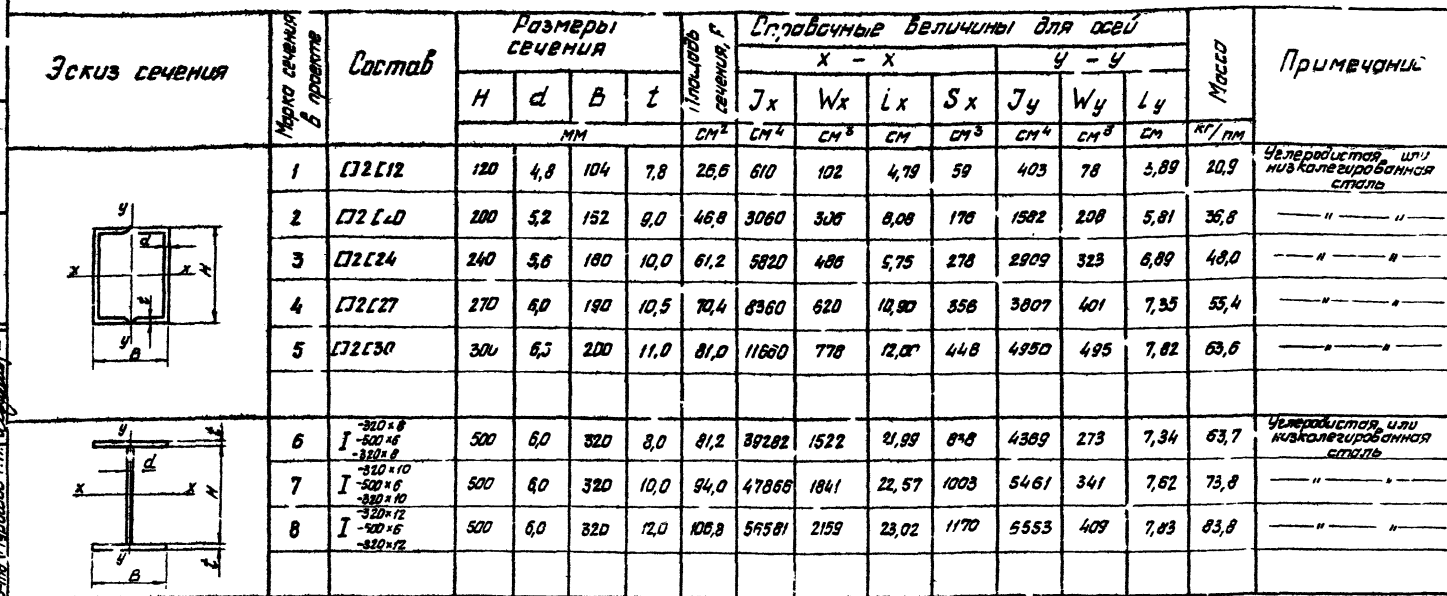 Эскиз сечения
Марка сечения в проекте
Состав
Размеры сечения
H d B t
мм
Площадь сечения, F
см²
Справочные величины для осей
x - x
y - y
Jx Wx ix Sx Jy Wy iy
см⁴ см³ см см³ см⁴ см³ см
Масса
кг/пм
Примечание
1 []2[12 120 4,8 104 7,8 26,6 610 102 4,79 59 403 78 3,89 20,9 Углеродистая, или низколегированная сталь
2 []2[20 200 5,2 152 9,0 46,8 3060 306 8,08 176 1582 208 5,81 36,8 — " — " —
3 []2[24 240 5,6 180 10,0 61,2 5820 486 9,75 278 2909 323 6,89 48,0 — " — " —
4 []2[27 270 6,0 190 10,5 70,4 8360 620 10,90 356 3807 401 7,35 55,4 — " — " —
5 []2[30 300 6,5 200 11,0 81,0 11660 778 12,00 448 4950 495 7,82 63,6 — " — " —
y
d
x x H
t
y
B
6 I -320×8 -500×6 -320×8 500 6,0 320 8,0 81,2 39282 1522 21,99 838 4369 273 7,34 63,7 Углеродистая, или низколегированная сталь
7 I -320×10 -500×6 -320×10 500 6,0 320 10,0 94,0 47866 1841 22,57 1003 5461 341 7,62 73,8 — " — " —
8 I -320×12 -500×6 -320×12 500 6,0 320 12,0 106,8 56581 2159 23,02 1170 6553 409 7,83 83,8 — " — " —
y t
d
x x H
y t
B